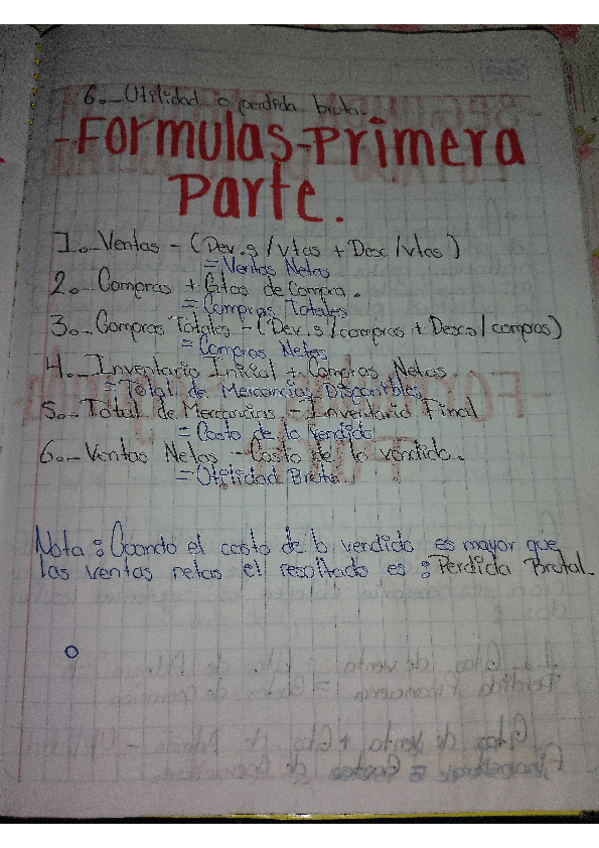 6.- Utilidad o perdida bruta.
-Formulas-Primera
Parte.
1.- Ventas - (Dev.s/vtas + Desc/vtas)
= Ventas Netas
2.- Compras + Gtos de Compra.
= Compras Totales
3.- Compras Totales - (Dev.s/compras + Descs/compras)
= Compras Netas
4.- Inventario Inicial + Compras Netas.
= Total de Mercancias Disponibles
5.- Total de Mercancias - Inventario Final
= Costo de lo Vendido
6.- Ventas Netas - Costo de lo vendido.
= Utilidad Bruta.
Nota: Cuando el costo de lo vendido es mayor que
las ventas netas el resultado es: Perdida Brutal-